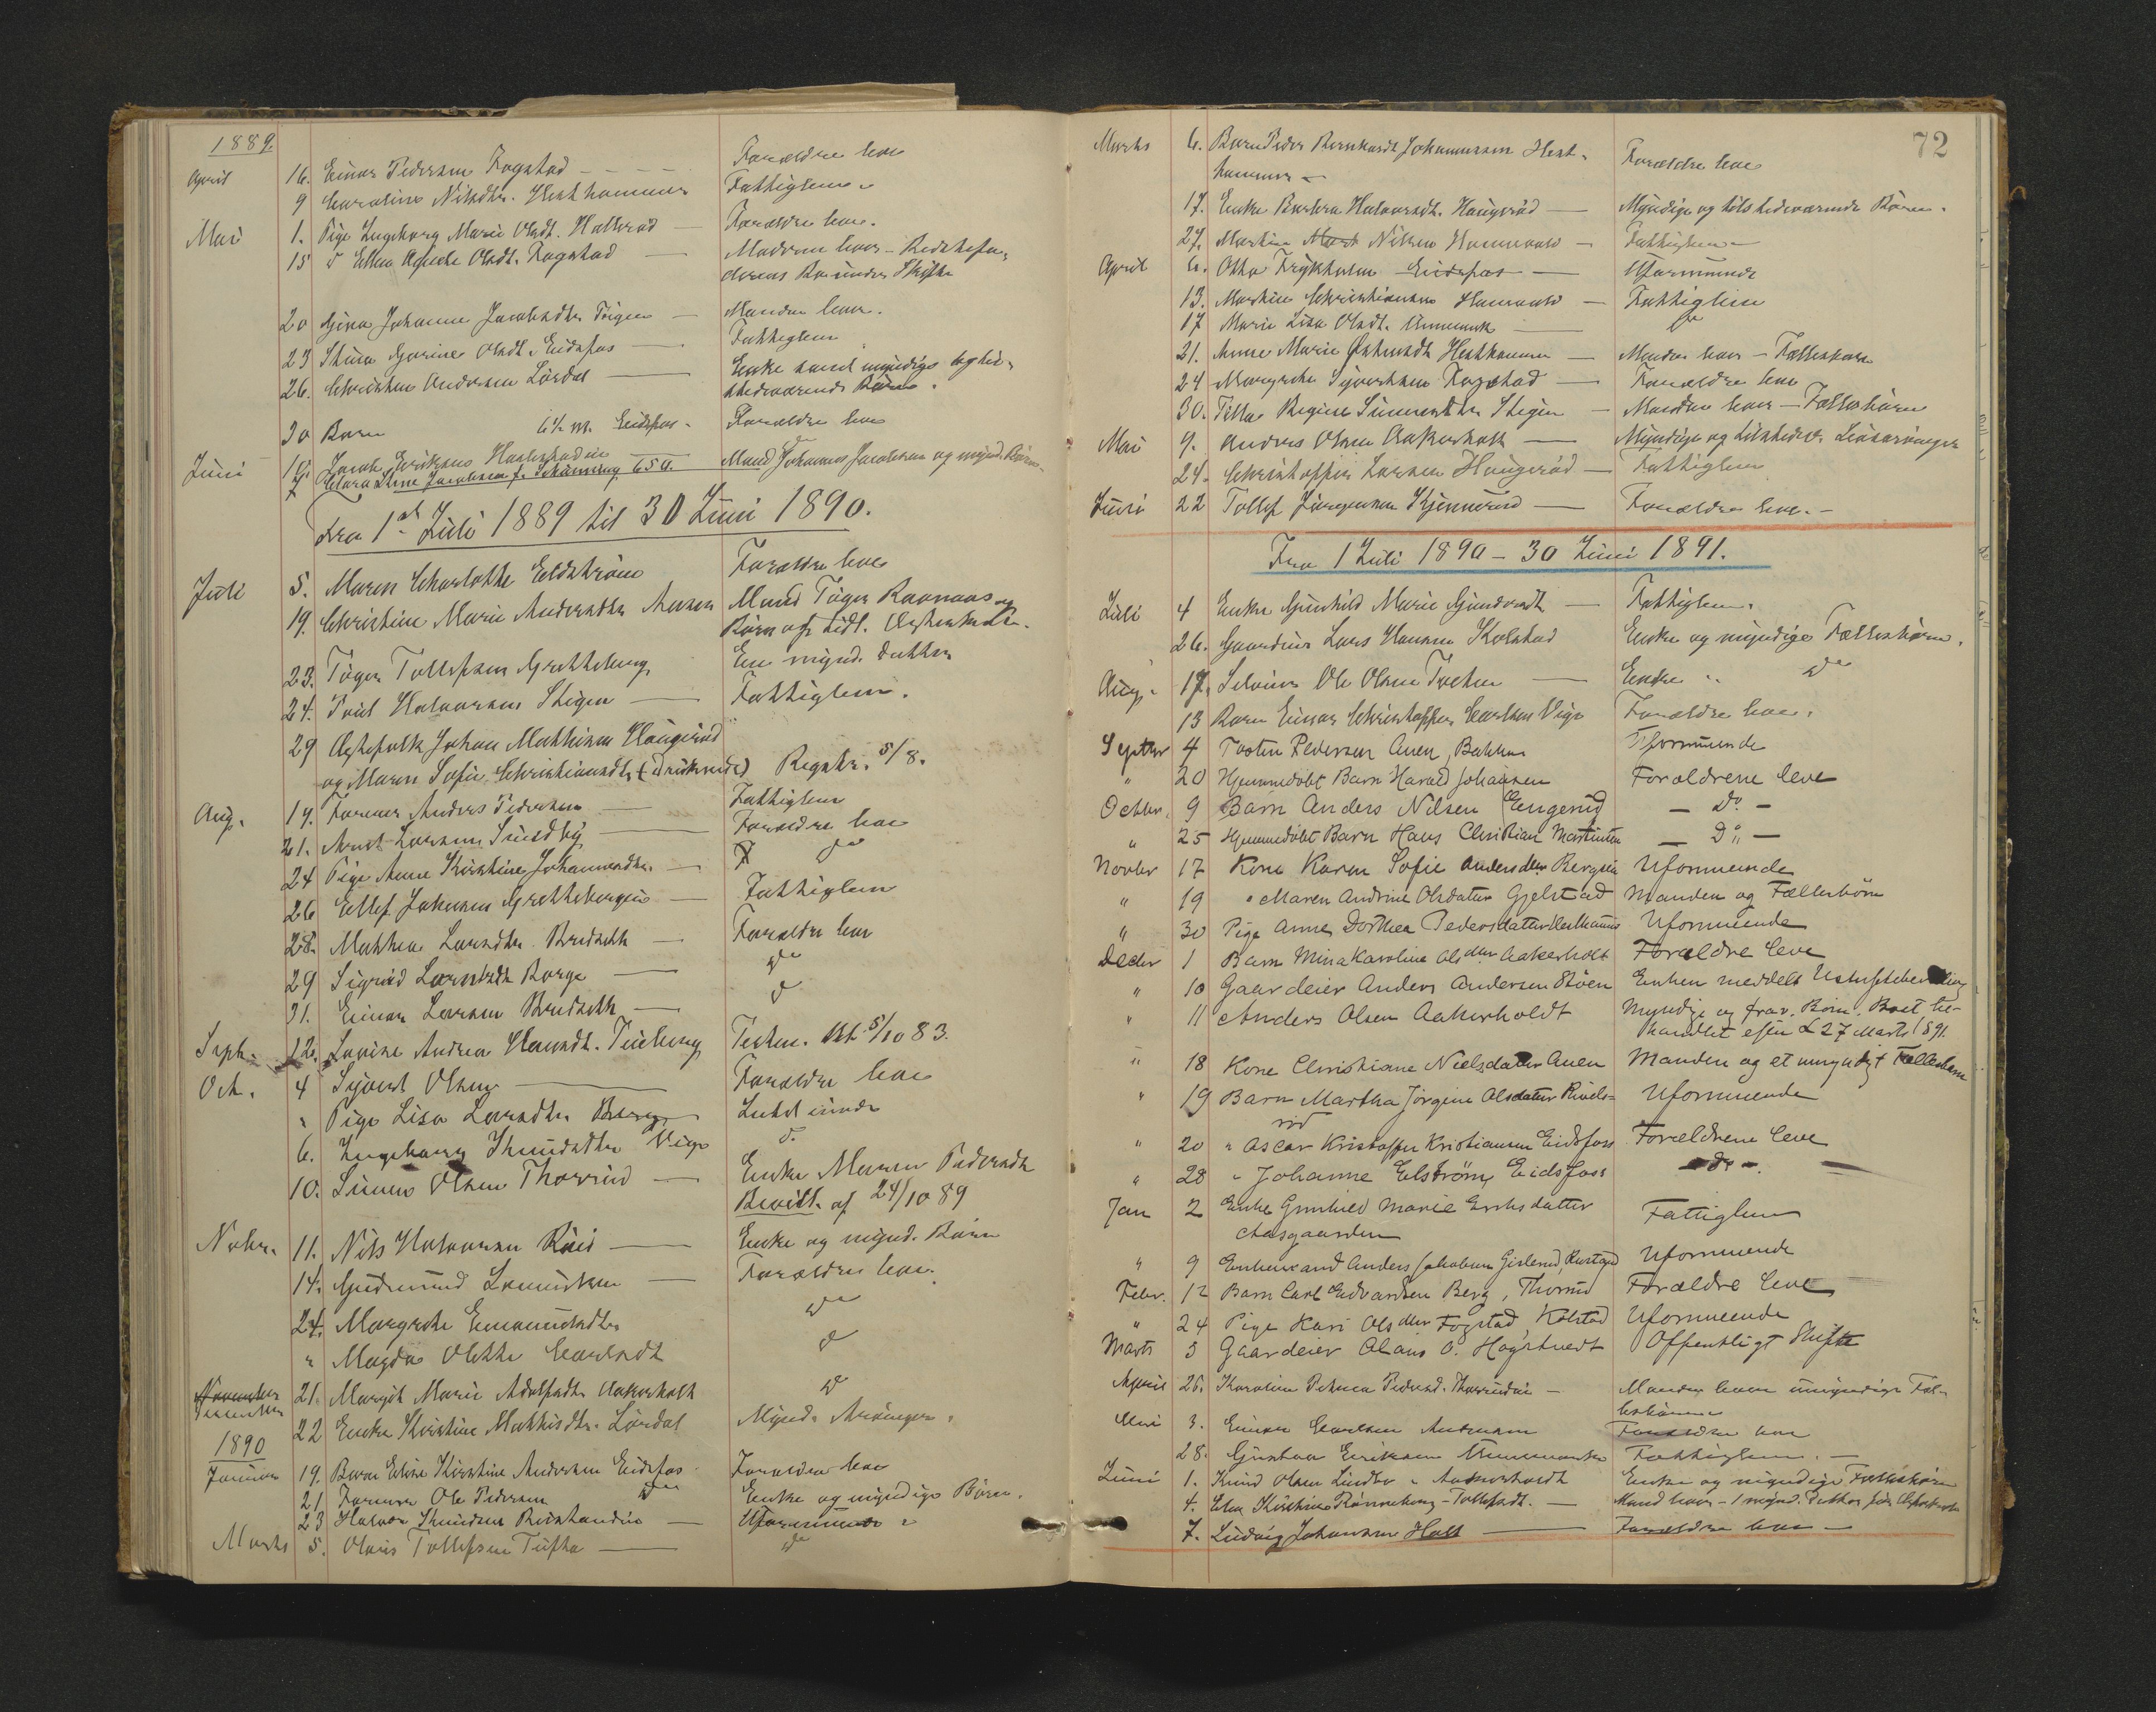 1889.
April 16. Einar Pedersen Fogstad - - - - Forældre leve
9 Caroline Nilsdtr. Hesthammer Fattiglem
Mai 1. Pige Ingeborg Marie Olsdt. Hallerød — Forældre leve.
15 d Ellen Agnethe Olsdt. Fogstad — Moderen lever - Bedstefa-
derens Skifte
20 Gina Johanne Jacobsdtr Teigen — Manden lever.
23 Stina Gurine Olsdt. Eidsfos — Fattiglem
26. Christian Andersen Lørdal — Enke samt myndige og tils-
stedeværende Børn.
30 Barn 6½ m. Eidsfos - Forældre leve
Juni 10. Jacob Eriksen
7 Clara Line Jacobsen f. Schanning 65 a. Mand Johannes Jacobsen og mynd. Børn
Fra 1st Juli 1889 til 30 Juni 1890.
Juli 5. Maren Charlotte Eldstrøm Forældre leve
19. Christine Marie Andersdtr Aasen Mand Tøger Ravnaas og
Børn af tidl. Ægteskab.
23. Tøger Tollefsen Gretteberg En mynd. Datter
24. Poul Halvorsen Stigen — Fattiglem.
29 Ægtefolk Johan Mathisen Haugerød
og Maren Sofie Christiansdtr (druknede) Registr. 5/8.
Aug. 19. Former Anders Pedersen — Fattiglem
21. Arnt Larsen Smedby — Forældre leve
24 Pige Anne Kirstine Johannesdtr. — do
26 Ellef Johnsen Grettebergeie — Fattiglem
28. Mathea Larsdtr. Bredseth — Forældre leve
29 Sigrid Larsdtr Borge — do
31. Einar Larsen Bredseth — d
Sept. 12. Lovise Andrea Hansdt. Tueberg Testm. Bek 5/10 83.
Oct. 4 Syvert Olsen — Forældre leve
" Pige Lisa Larsdtr. Berg
6. Ingeborg Knudsdtr Vego d.
10. Simen Olsen Thorrud — Enke Maren Pedersdtr
Bevilk. af 24/10 89
Nobr. 11. Nils Halvorsen Røis — Enke og mynd. Børn
14. Gudmund Larsen — Forældre leve.
24. Margrethe Emanuelsdtr do
" Magda Olette Carlsdt d
November
December 21. Margit Marie Adolfsdtr Aakerholt do
22 Enke Kirstine Mathisdtr. Lørdal Mynd. Arvinger.
1890
Januar 19. Barn Eline Kirstine Andersen Eidsfos Forældre leve
21 Former Ole Pedersen do Enke og myndige Børn.
23 Halvor Knudsen — Uformuende
Marts 5. Olaus Tollefsen Tufta — do
72
Marts 6. Barn Peder Bernhardt Johannessen Hest-
hammer — Forældre leve
17. Enke Barbra Halvorsdt. Haugerød — Myndige og tilstedeværende Børn.
27. Martin Nilsen Hannevold — Fattiglem
April 6. Otto Frykholm Eidsfos — Uformuende
13. Martin Christiansen Hannevold — Fattiglem
17 Marie Lisa Olsdt. — do
21. Anne Marie Hesthammer — Manden lever - Fællesbørn
24 Margrethe Syvertsen Fogstad — Forældre leve
30. Tilla Regine Simensdtr Stigen — Manden lever — Fællesbørn
Mai 9. Anders Olsen Aakerholt — Myndige og tilstedev. Livsarvinger
24. Christoffer Larsen Haugerød — Fattiglem
Juni 22 Tollef Jørgensen Kjennerud — Forældre leve.—
Fra 1 Juli 1890 - 30 Juni 1891.
Juli 4 Enke Gunhild Marie — Fattiglem.
26. Gaardeier Lars Hansen Kolstad Enke og myndige Fællesbørn.
Aug. 17. Selveier Ole Olsen — Enke " do
13 Barn Einar Christoffer Carlsen Vego Forældre leve.
Septbr 4 Tosten Pedersen Auen, Bakken Uformuende
" 20 Hjemmedøbt Barn Harald Johansen Forældrene leve
Octbr. 9 Barn Anders Nilsen Engerud — Do. —
" 25 Hjemmedøbt Barn Hans Christian Martinsen — Do —
Novbr 17 Kone Karen Sofie Andersdtr Bergseie Uformuende
" 19 " Maren Andrine Olsdatter Gjelstad Manden og Fællesbörn
" 30 Pige Anne Dorthea Pedersdatter Uformuende
Decbr 1 Barn Mina Karoline Olsdtr Aakerholt Forældre leve
" 10 Gaardeier Anders Andersen Støen Enken meddelt Uskiftebevilling
" 11 Anders Olsen Aakerholdt Myndige og frav. Børn. Boet be-
handlet efter L 27 Marts 1891.
" 18 Kone Christiane Nielsdatter Auen Manden og et umyndigt Fællesbarn
" 19 Barn Martha Jörgine Olsdatter Rivels-
rød Uformuende
" 20 " Oscar Kristoffer Kristiansen Eidsfoss Forældrene leve
" 28 " Johanne Elström, Eidsfoss — do —
Jan 2 Enke Gunhild Marie Eriksdatter
Aasgaarden Fattiglem
" 9 Enkemand Anders Jakobsen Gislerud, Rustad Uformuende
Febr. 12 Barn Carl Edvardsen Berg, Thorrud Forældre leve
" 24 Pige Kari Olsdtr Fogstad, Kolstad Uformuende
Marts 5 Gaardeier Olaus O. Hogstvedt Offentligt Skifte
April 26. Karoline Petrea Pedersd. Thorrudeie — Manden lever umyndige Fæl-
lesbörn
Mai 3. Einar Carlsen Forældre leve
28. Gustav Eriksen Fattiglem. —
Juni 1. Knud Olsen Lindbo " Aakerholdt Enke og myndige Fællesbørn
4. Elen Kirstine Rønneberg - Tollefsdt. — Mand lever - 1 mynd. Datter
7. Ludvig Johansen Holt — Forældre leve —